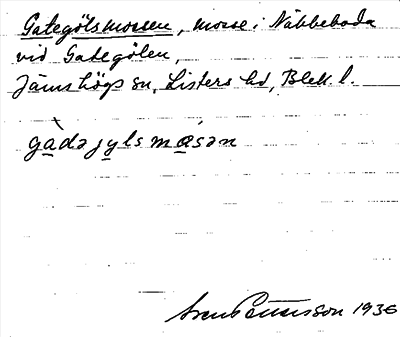 Gategölsmossen, mosse i Näbbeboda
vid Gategölen,
Jämshögs sn, Listers hd, Blek. l.
gàdəjylsmåsən
1936